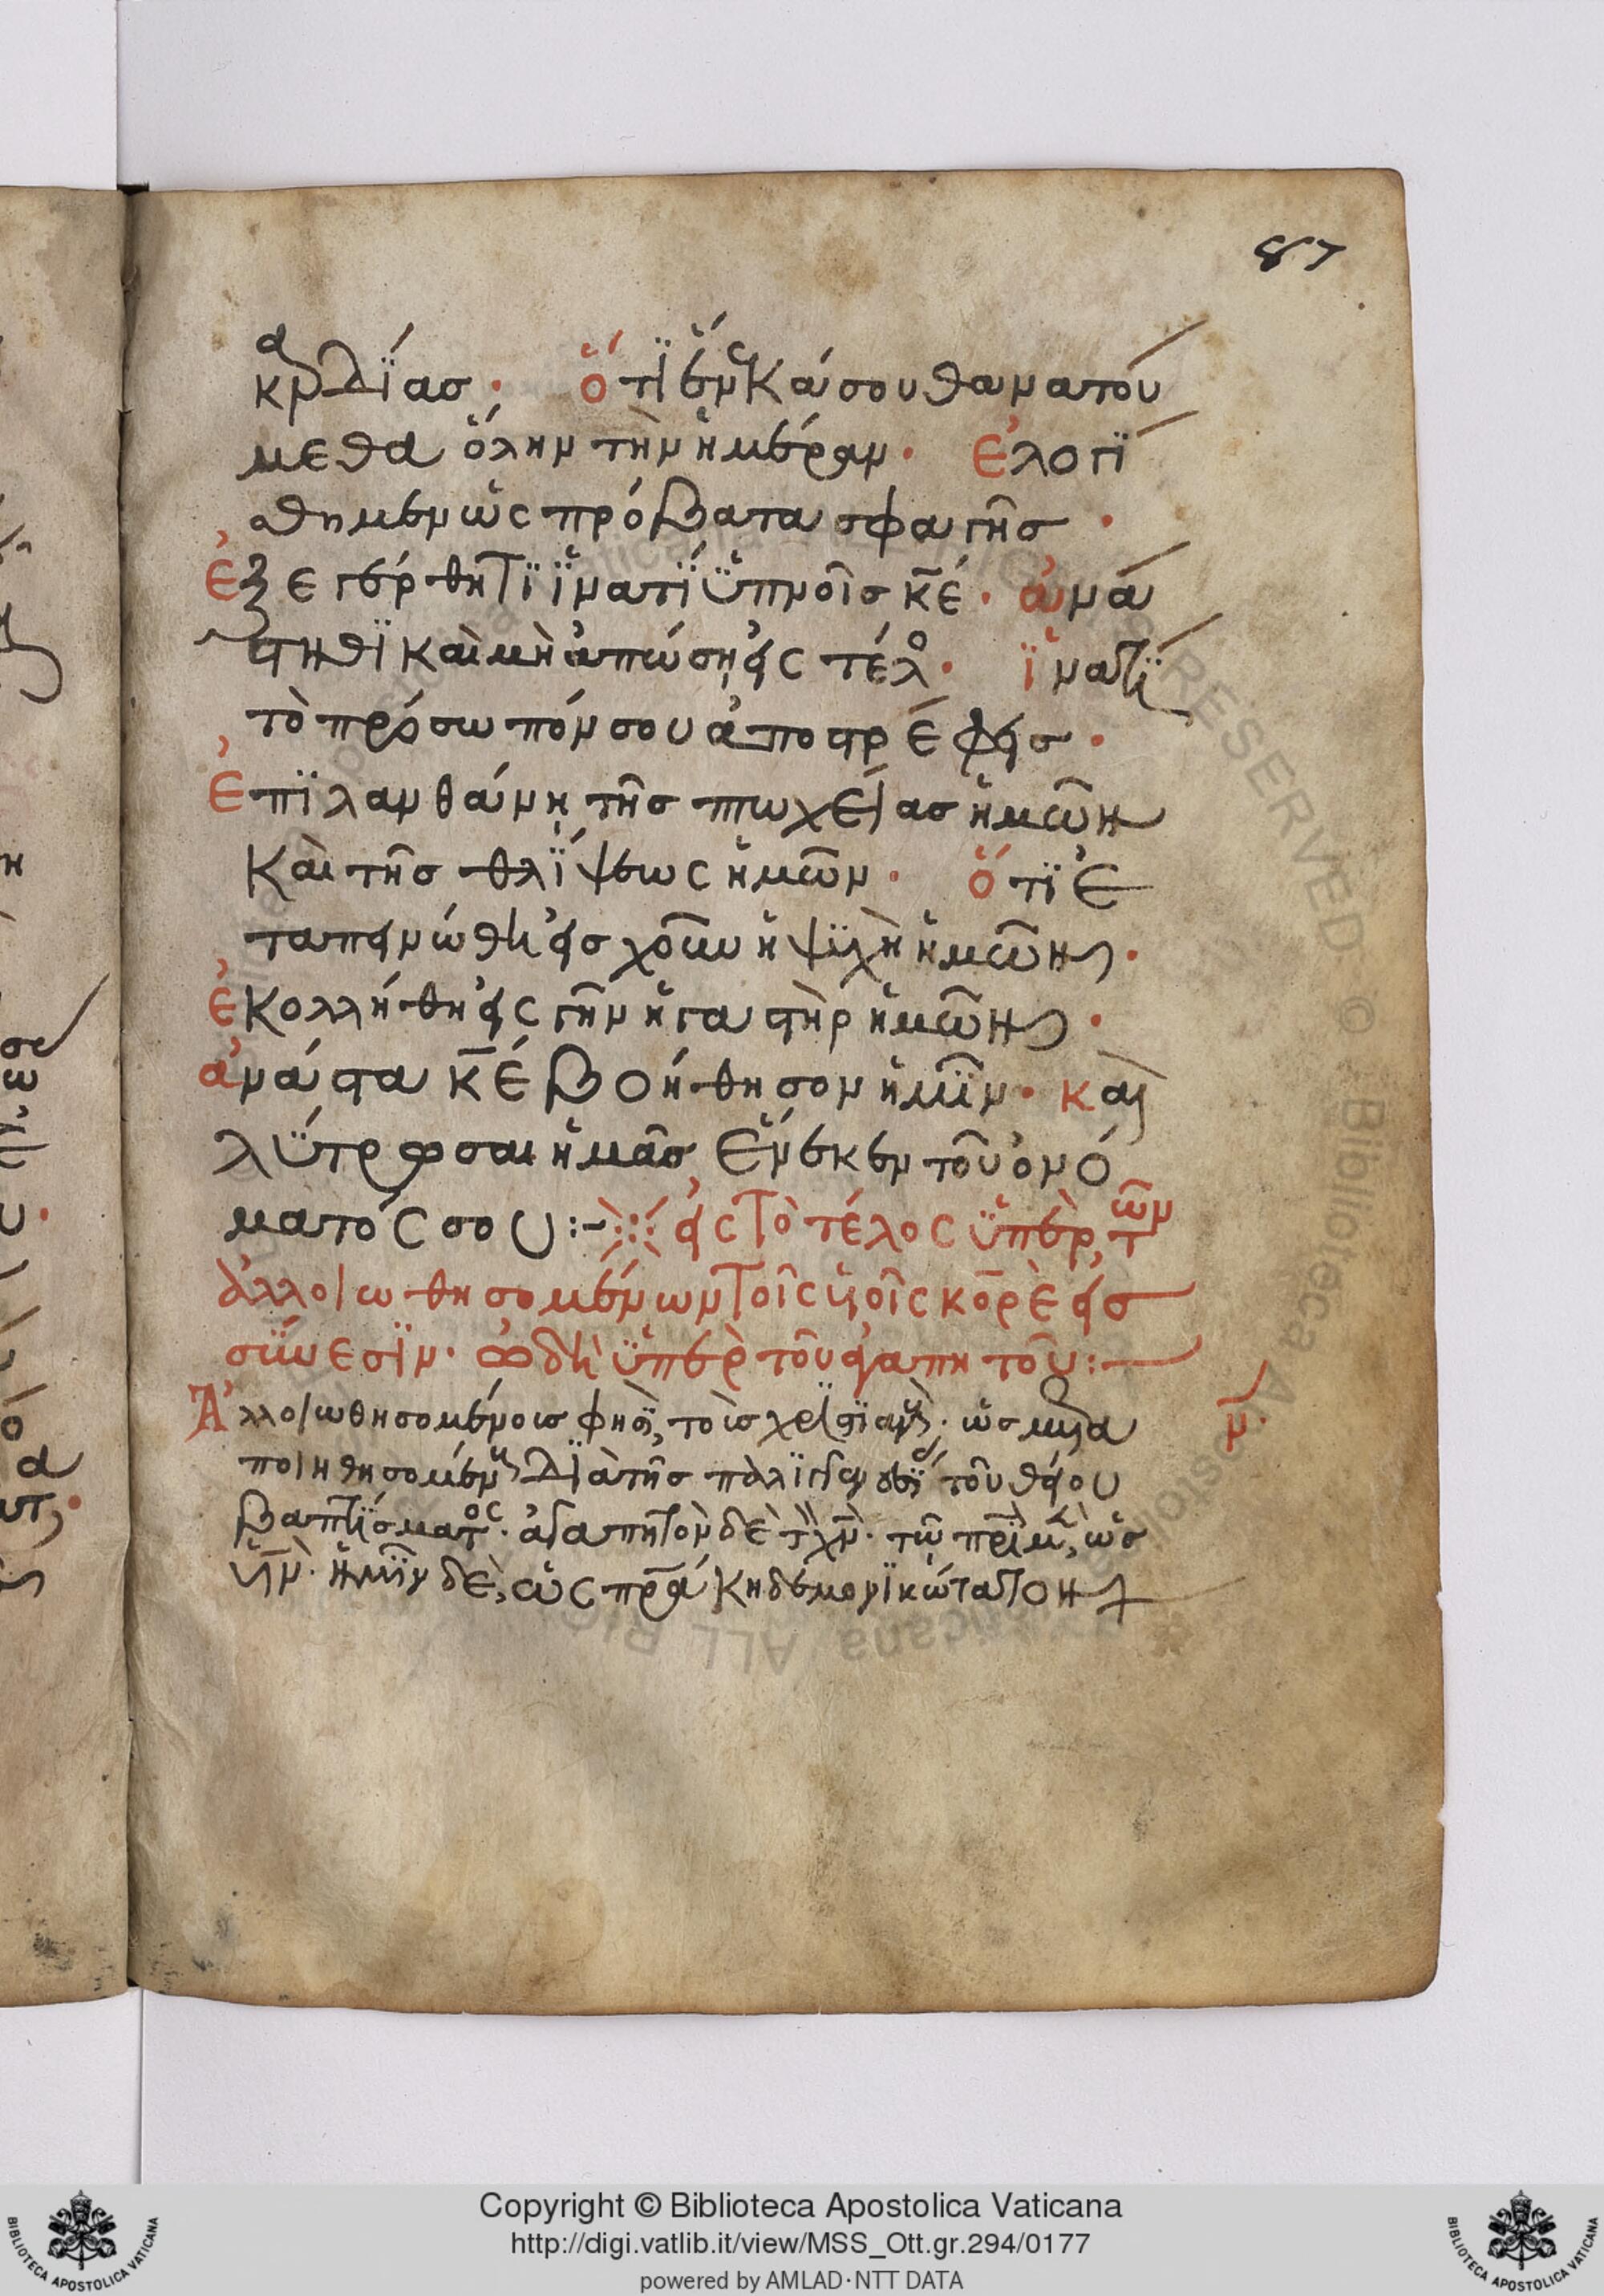 87
καρδίας· ὅτι ἕνεκά σου θανατού
μεθα ὅλην τὴν ἡμέραν· Ἐλογί
σθημεν ὡς πρόβατα σφαγῆς·
Ἐξεγέρθητι ἵνα τί ὑπνοῖς κ̅ε̅· ἀνά
στηθι καὶ μὴ ἀπώσῃ εἰς τέλο· ἵνα τί
τὸ πρόσωπόν σου ἀποστρέφεις·
Ἐπιλανθάνῃ τῆς πτωχείας ἡμῶν
καὶ τῆς θλίψεως ἡμῶν· ὅτι ἐ
ταπεινώθη εἰς χοῦν ἡ ψυχὴ ἡμῶν·
ἐκολλήθη εἰς γῆν ἡ γαστὴρ ἡμῶν·
ἀνάστα κ̅ε̅ βοήθησον ἡμῖν· καὶ
λύτρωσαι ἡμᾶς ἕνεκεν τοῦ ὀνό
ματός σου :- εἰς τὸ τέλος ὑπὲρ τῶν
ἀλλοιωθησομένων τοῖς υἱοῖς κορὲ εἰς
σύνεσιν· ὠδὴ ὑπὲρ τοῦ ἀγαπητοῦ:
Ἀλλοιωθησομένοις φησὶ, τοῖς χριστιανοῖς· ὡς μετα
ποιηθησομένων διὰ τῆς παλιγγενεσίας τοῦ θείου
βαπτίσματος· ἀγαπητὸν δὲ τὸν χ̅ν̅· τῷ π̅ρ̅ὶ μὲν, ὡς
υ̅ν̅· ἡμῖν δὲ, ὡς π̅ρ̅α κηδεμονικώτατον
μ·
Copyright © Biblioteca Apostolica Vaticana
http://digi.vatlib.it/view/MSS_Ott.gr.294/0177
powered by AMLAD·NTT DATA
BIBLIOTECA APOSTOLICA VATICANA
BIBLIOTECA APOSTOLICA VATICANA